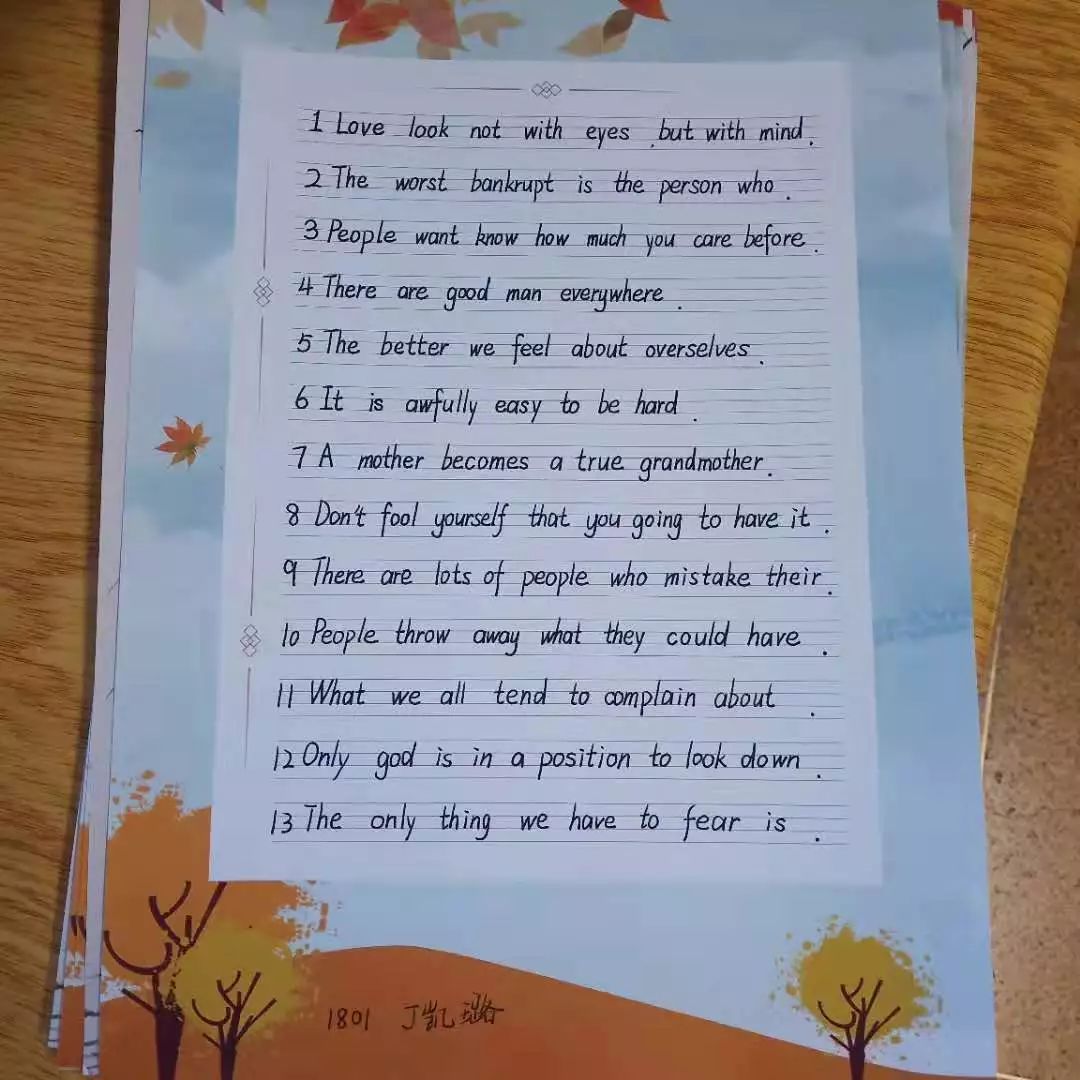 1 Love look not with eyes, but with mind.
2 The worst bankrupt is the person who.
3 People want know how much you care before.
4 There are good man everywhere.
5 The better we feel about overselves.
6 It is awfully easy to be hard.
7 A mother becomes a true grandmother.
8 Don't fool yourself that you going to have it.
9 There are lots of people who mistake their.
10 People throw away what they could have.
11 What we all tend to complain about.
12 Only god is in a position to look down.
13 The only thing we have to fear is.
1801 丁凯璐